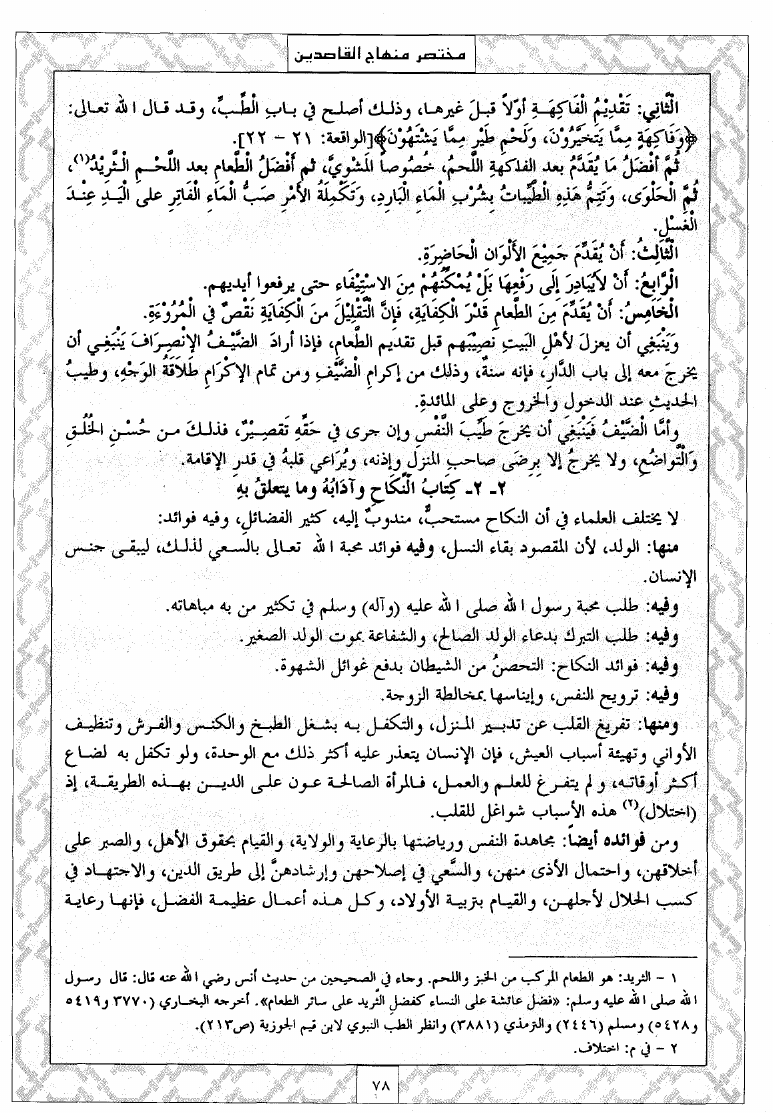 مختصر منهاج القاصدين
الْثَّانِي: تَقْدِيْمُ الْفَاكِهَةِ أوّلاً قبلَ غيرها، وذلك أصلح في بـابِ الْطِّبِّ، وقد قال الله تعالى:
﴿وَفَاكِهَةٍ مِمَّا يَتَخَيَّرُوْنَ، وَلَحْمِ طَيْرٍ مِمَّا يَشْتَهُوْنَ﴾[الواقعة: ٢١ – ٢٢].
ثُمَّ أفْضَلُ مَا يُقَدَّمُ بعد الفاكهةِ اللَّحمُ، خُصُوصاً المَشْوِيَّ، ثم أفْضَلُ الْطَّعام بعد اللَّحْمِ الْثَّرِيْدُ(١)،
ثُمَّ الْحَلْوَى، وَتَتِمُّ هَذِهِ الْطَّيِّبَاتُ بِشُرْبِ الْمَاءِ الْبَارِدِ، وَتَكْمِلَةُ الأمْرِ صَبُّ الْمَاءِ الْفَاتِرِ على الْيَدِ عِنْدَ
الْغَسْلِ.
الْثَّالِثُ: أَنْ يُقَدِّمَ جَمِيْعَ الأَلْوَان الْحَاضِرَةِ.
الْرَّابِعُ: أَنْ لاَيُبَادِرَ إلَى رَفْعِهَا بَلْ يُمْكِّنُهُمْ مِنَ الاسْتِيْفَاءِ حتى يرفعوا أيديهم.
الْخَامِسُ: أَنْ يُقَدِّمَ مِنَ الطَّعام قَدْرَ الْكِفَايَةِ، فَإِنَّ الْتَّقْلِيْلَ منَ الْكِفَايَةِ نَقْصٌ في الْمُرُوْءَةِ.
وَيَنْبَغِي أن يعزلَ لأهْلِ البيتِ نَصِيْبَهم قبل تقديم الطَّعام، فإذا أرادَ الضَّيْفُ الإنْصِرَافَ يَنْبَغِي أن
يخرجَ معه إلى باب الدَّار، فإنه سنةٌ، وذلك من إكرامِ الْضَّيْفِ ومن تمامِ الإكرَامِ طَلاَقَةُ الوَجْهِ، وطيبُ
الحديثِ عند الدخولِ والخروج وعلى المائدةِ.
وأمَّا الْضَّيْفُ فَيَنْبَغِي أن يخرجَ طَيِّبَ النَّفْسِ وإن جرى في حَقِّهِ تَقْصِيْرٌ، فذلكَ من حُسْنِ الْخُلُقِ
وَالْتَّوَاضُعِ، ولا يخرجُ إلا برِضَى صاحبِ المنزلِ وإذنه، ويُرَاعي قلبهُ في قدرِ الإقامة.
٢ـ ٢ـ كِتَابُ الْنِّكَاحِ وآدَابُهُ وما يتعلقُ بِهِ
لا يختلف العلماء في أن النكاح مستحبٌّ، مندوبٌ إليه، كثير الفضائل، وفيه فوائد:
منها: الولد، لأن المقصود بقاء النسل، وفيه فوائد محبة الله تعالى بالسعي لذلك، ليبقى جنس
الإنسان.
وفيه: طلب محبة رسول الله صلى الله عليه (وآله) وسلم في تكثير من به مباهاته.
وفيه: طلب التبرك بدعاء الولد الصالح، والشفاعة بموت الولد الصغير.
وفيه: فوائد النكاح: التحصنُ من الشيطان بدفع غوائل الشهوة.
وفيه: ترويح النفس، وإيناسها بمخالطة الزوجة.
ومنها: تفريغ القلب عن تدبير المنزل، والتكفل به بشغل الطبخ والكنس والفرش وتنظيف
الأواني وتهيئة أسباب العيش، فإن الإنسان يتعذر عليه أكثر ذلك مع الوحدة، ولو تكفل به لضاع
أكثر أوقاته، ولم يتفرغ للعلم والعمل، فالمرأة الصالحة عون على الدين بهذه الطريقة، إذ
(اختلال)(٢) هذه الأسباب شواغل للقلب.
ومن فوائده أيضاً: مجاهدة النفس ورياضتها بالرعاية والولاية، والقيام بحقوق الأهل، والصبر على
أخلاقهن، واحتمال الأذى منهن، والسَّعي في إصلاحهن وإرشادهنَّ إلى طريق الدين، والاجتهاد في
كسب الحلال لأجلهن، والقيام بتربية الأولاد، وكل هذه أعمال عظيمة الفضل، فإنها رعاية
١ – الثريد: هو الطعام المركب من الخبز واللحم. وجاء في الصحيحين من حديث أنس رضي الله عنه قال: قال رسول
الله صلى الله عليه وسلم: «فضل عائشة على النساء كفضل الثريد على سائر الطعام». أخرجه البخاري (٣٧٧٠ و٥٤١٩
و٥٤٢٨) ومسلم (٢٤٤٦) والترمذي (٣٨٨١) وانظر الطب النبوي لابن قيم الجوزية (ص٢١٣).
٢ – في م: اختلاف.
٧٨